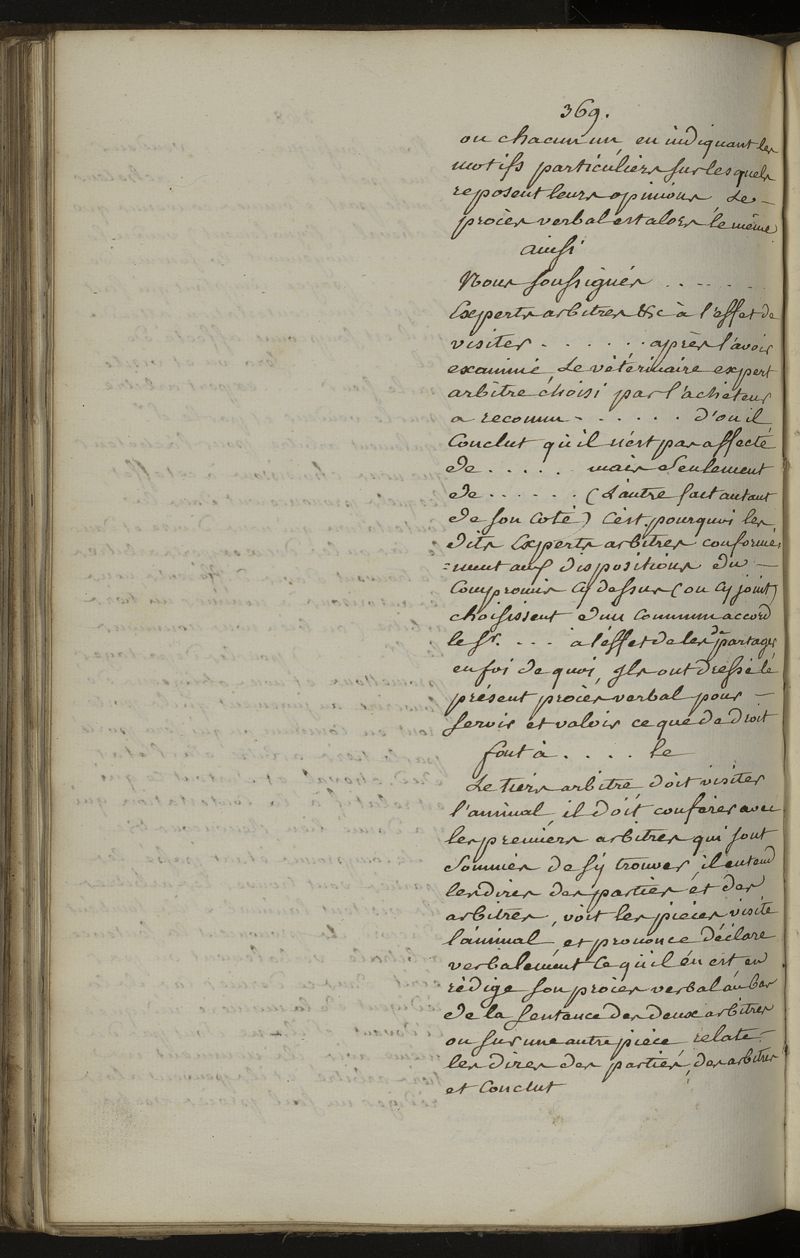 369.
ou chacun un, en indiquant les
motifs particuliers sur lesquels
reposent leurs opinions, Le –
procès verbal est alors le même
ainsi
Nous soussignés . . . . . .
Experts arbitres &c à l'effet de
visiter . . . . . . après l'avoir
examiné, Le vétérinaire expert
arbitre choisi par l'acheteur
a reconnu - . . . . . d'ou il
Conclut qu'il n'est pas affecté
de . . . . . mais Seulement
de . . . . . . (L'autre fait autant
de son coté) C'est pourquoi les
dits Experts arbitres conformé,
=ment aux dispositions du –
Compromis cy dessus (ou cy joint)
choisissent d'un commun accord
le Sr. - - . à l'effet de les départager
en foi de quoi, Ils ont dressé le
présent procès verbal pour –
servir et valoir ce que de droit
fait à . . . . le
Le tiers arbitre doit visiter
l'animal, il doit conférer avec
les premiers arbitres qui sont
Sommés de s'y trouver, il entend
les dires des parties et des
arbitres, voit les pièces, visite
l'animal, et prononce déclare
verbalement ce qu'il en est, en
rédige son procès verbal au bas
de la sentence des deux arbitres
ou sur une autre pièce relate –
les dires des parties, des arbitres
et Conclut